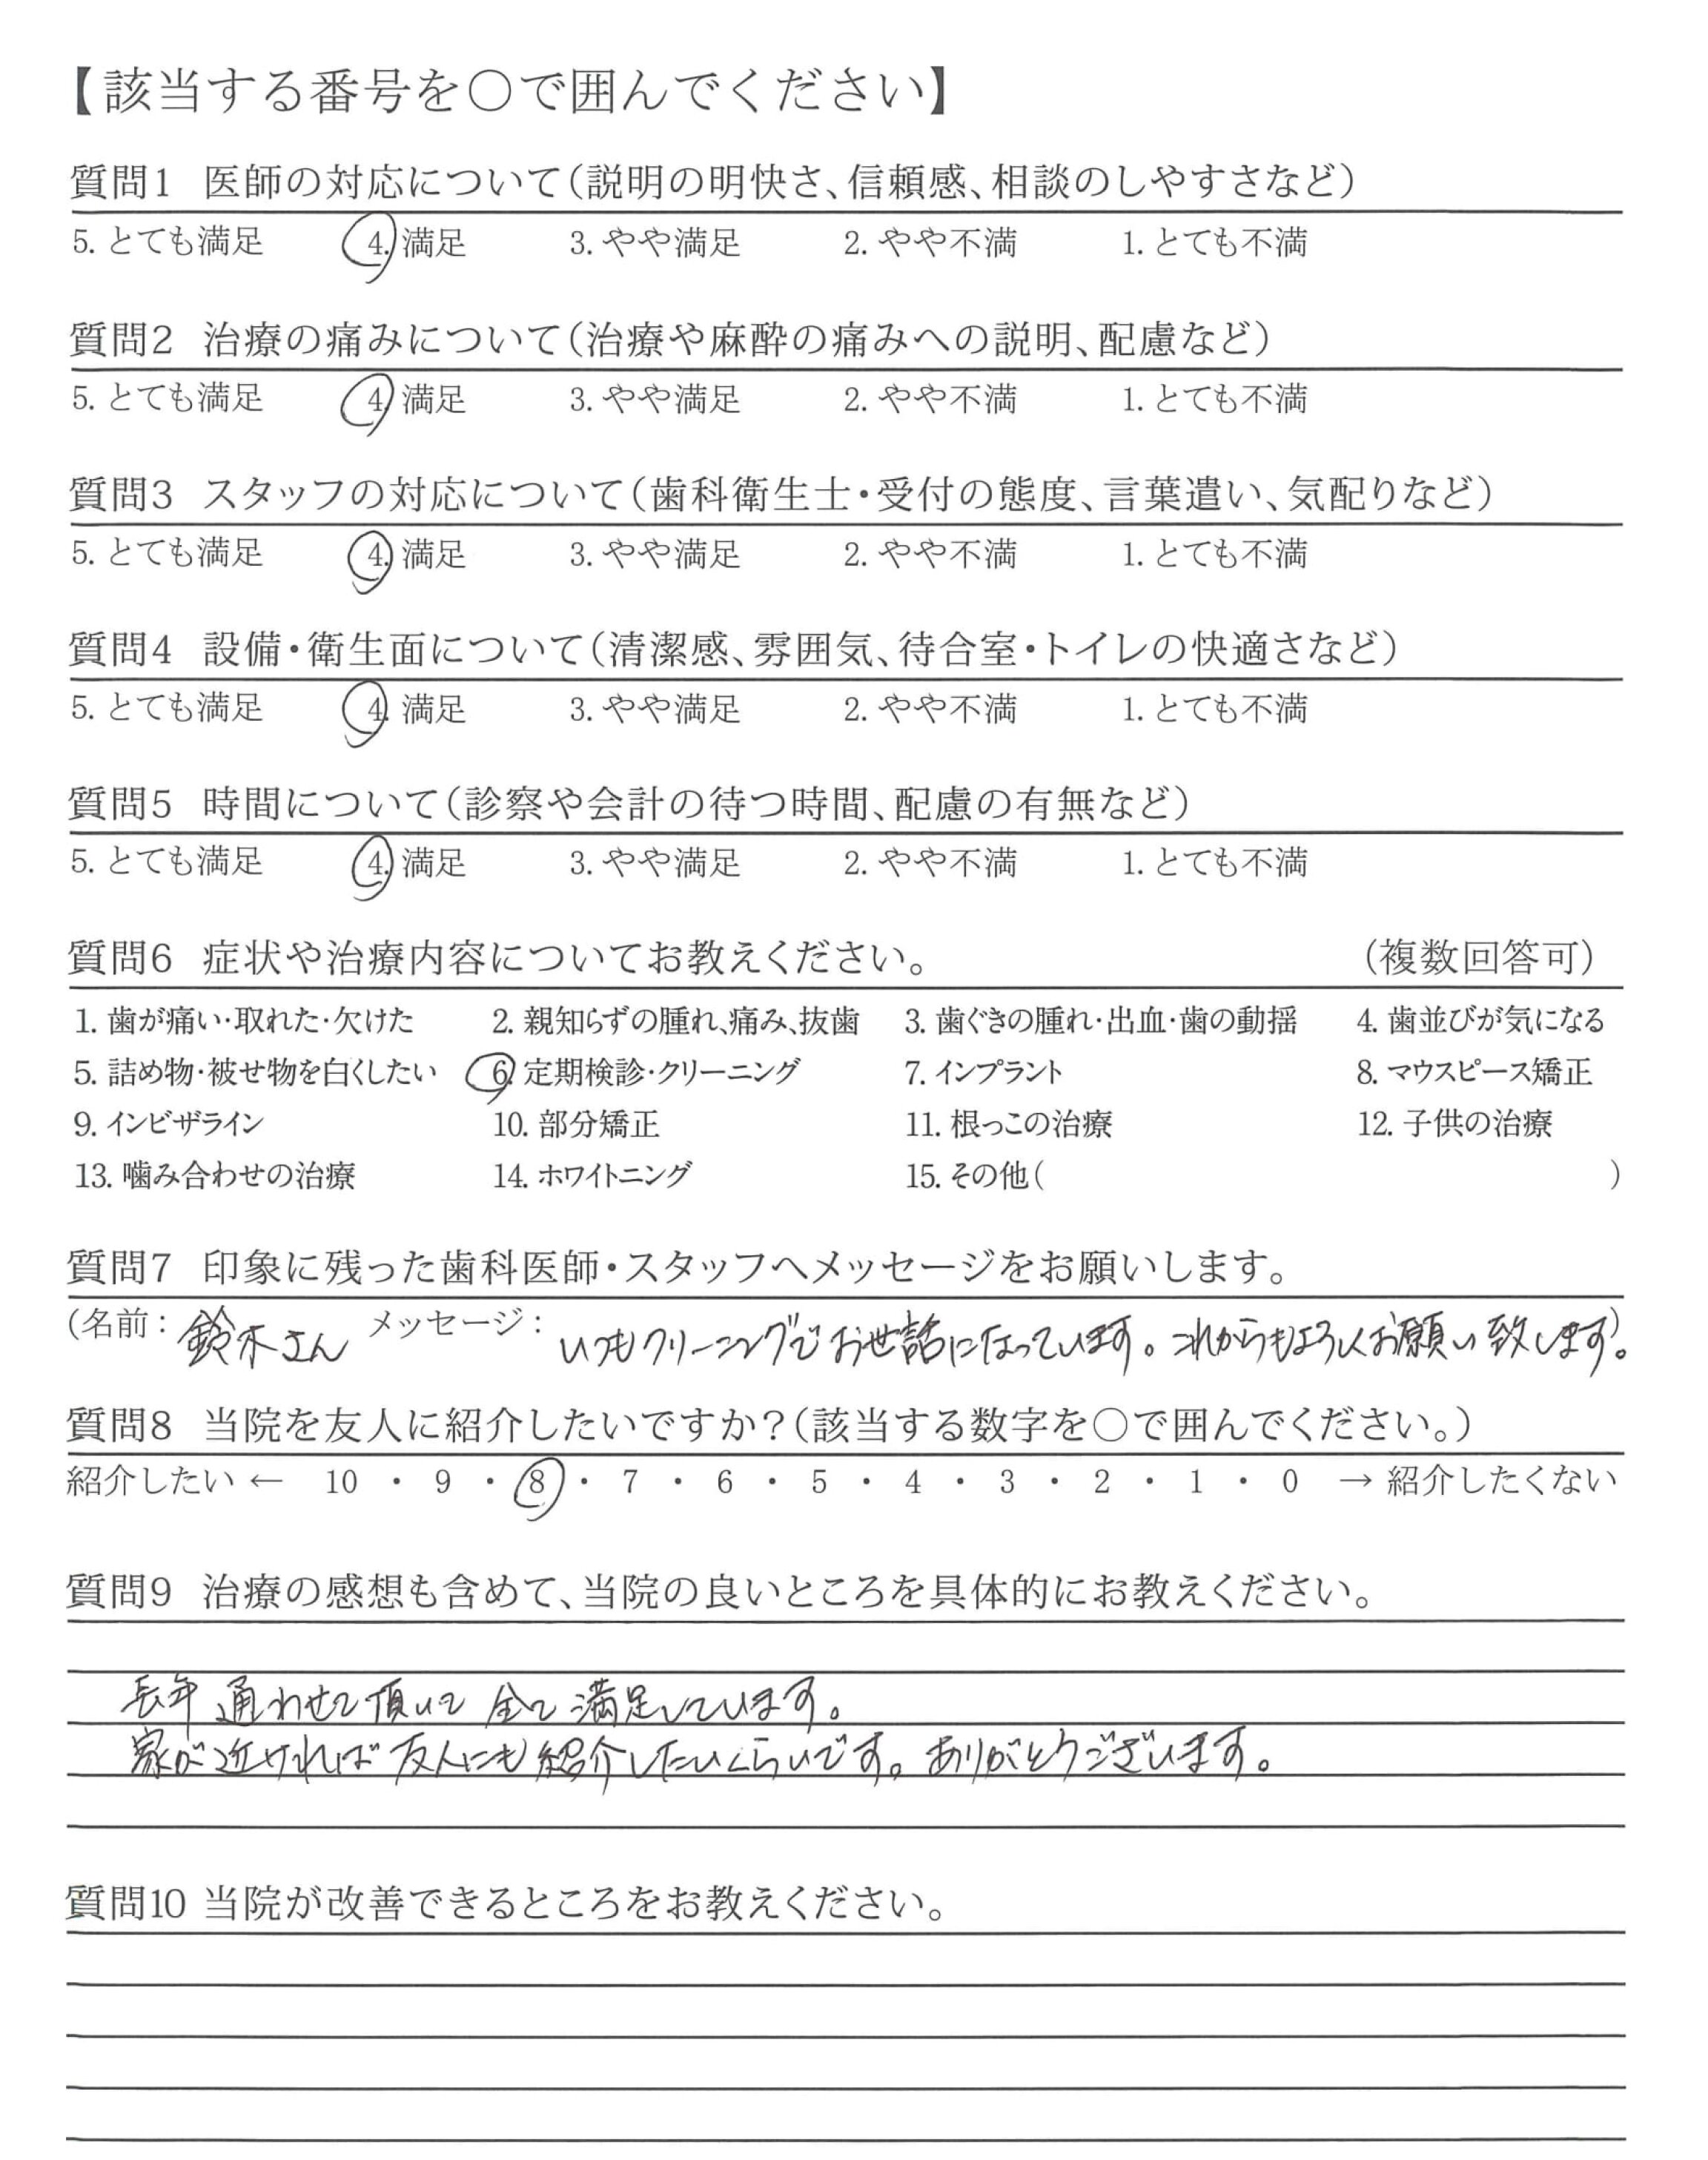 【該当する番号を〇で囲んでください】
質問1 医師の対応について(説明の明快さ、信頼感、相談のしやすさなど)
5. とても満足 4. 満足 3. やや満足 2. やや不満 1. とても不満
質問2 治療の痛みについて(治療や麻酔の痛みへの説明、配慮など)
5. とても満足 4. 満足 3. やや満足 2. やや不満 1. とても不満
質問3 スタッフの対応について(歯科衛生士・受付の態度、言葉遣い、気配りなど)
5. とても満足 4. 満足 3. やや満足 2. やや不満 1. とても不満
質問4 設備・衛生面について(清潔感、雰囲気、待合室・トイレの快適さなど)
5. とても満足 4. 満足 3. やや満足 2. やや不満 1. とても不満
質問5 時間について(診察や会計の待つ時間、配慮の有無など)
5. とても満足 4. 満足 3. やや満足 2. やや不満 1. とても不満
質問6 症状や治療内容についてお教えください。 (複数回答可)
1. 歯が痛い・取れた・欠けた 2. 親知らずの腫れ、痛み、抜歯 3. 歯ぐきの腫れ・出血・歯の動揺 4. 歯並びが気になる
5. 詰め物・被せ物を白くしたい 6. 定期検診・クリーニング 7. インプラント 8. マウスピース矯正
9. インビザライン 10. 部分矯正 11. 根っこの治療 12. 子供の治療
13. 噛み合わせの治療 14. ホワイトニング 15. その他( )
質問7 印象に残った歯科医師・スタッフへメッセージをお願いします。
(名前: 鈴木さん メッセージ: いつもクリーニングでお世話になっています。これからもよろしくお願い致します。)
質問8 当院を友人に紹介したいですか?(該当する数字を〇で囲んでください。)
紹介したい ← 10 ・ 9 ・ 8 ・ 7 ・ 6 ・ 5 ・ 4 ・ 3 ・ 2 ・ 1 ・ 0 → 紹介したくない
質問9 治療の感想も含めて、当院の良いところを具体的にお教えください。
長年通わせて頂いて全て満足しています。
家が近ければ友人にも紹介したいくらいです。ありがとうございます。
質問10 当院が改善できるところをお教えください。